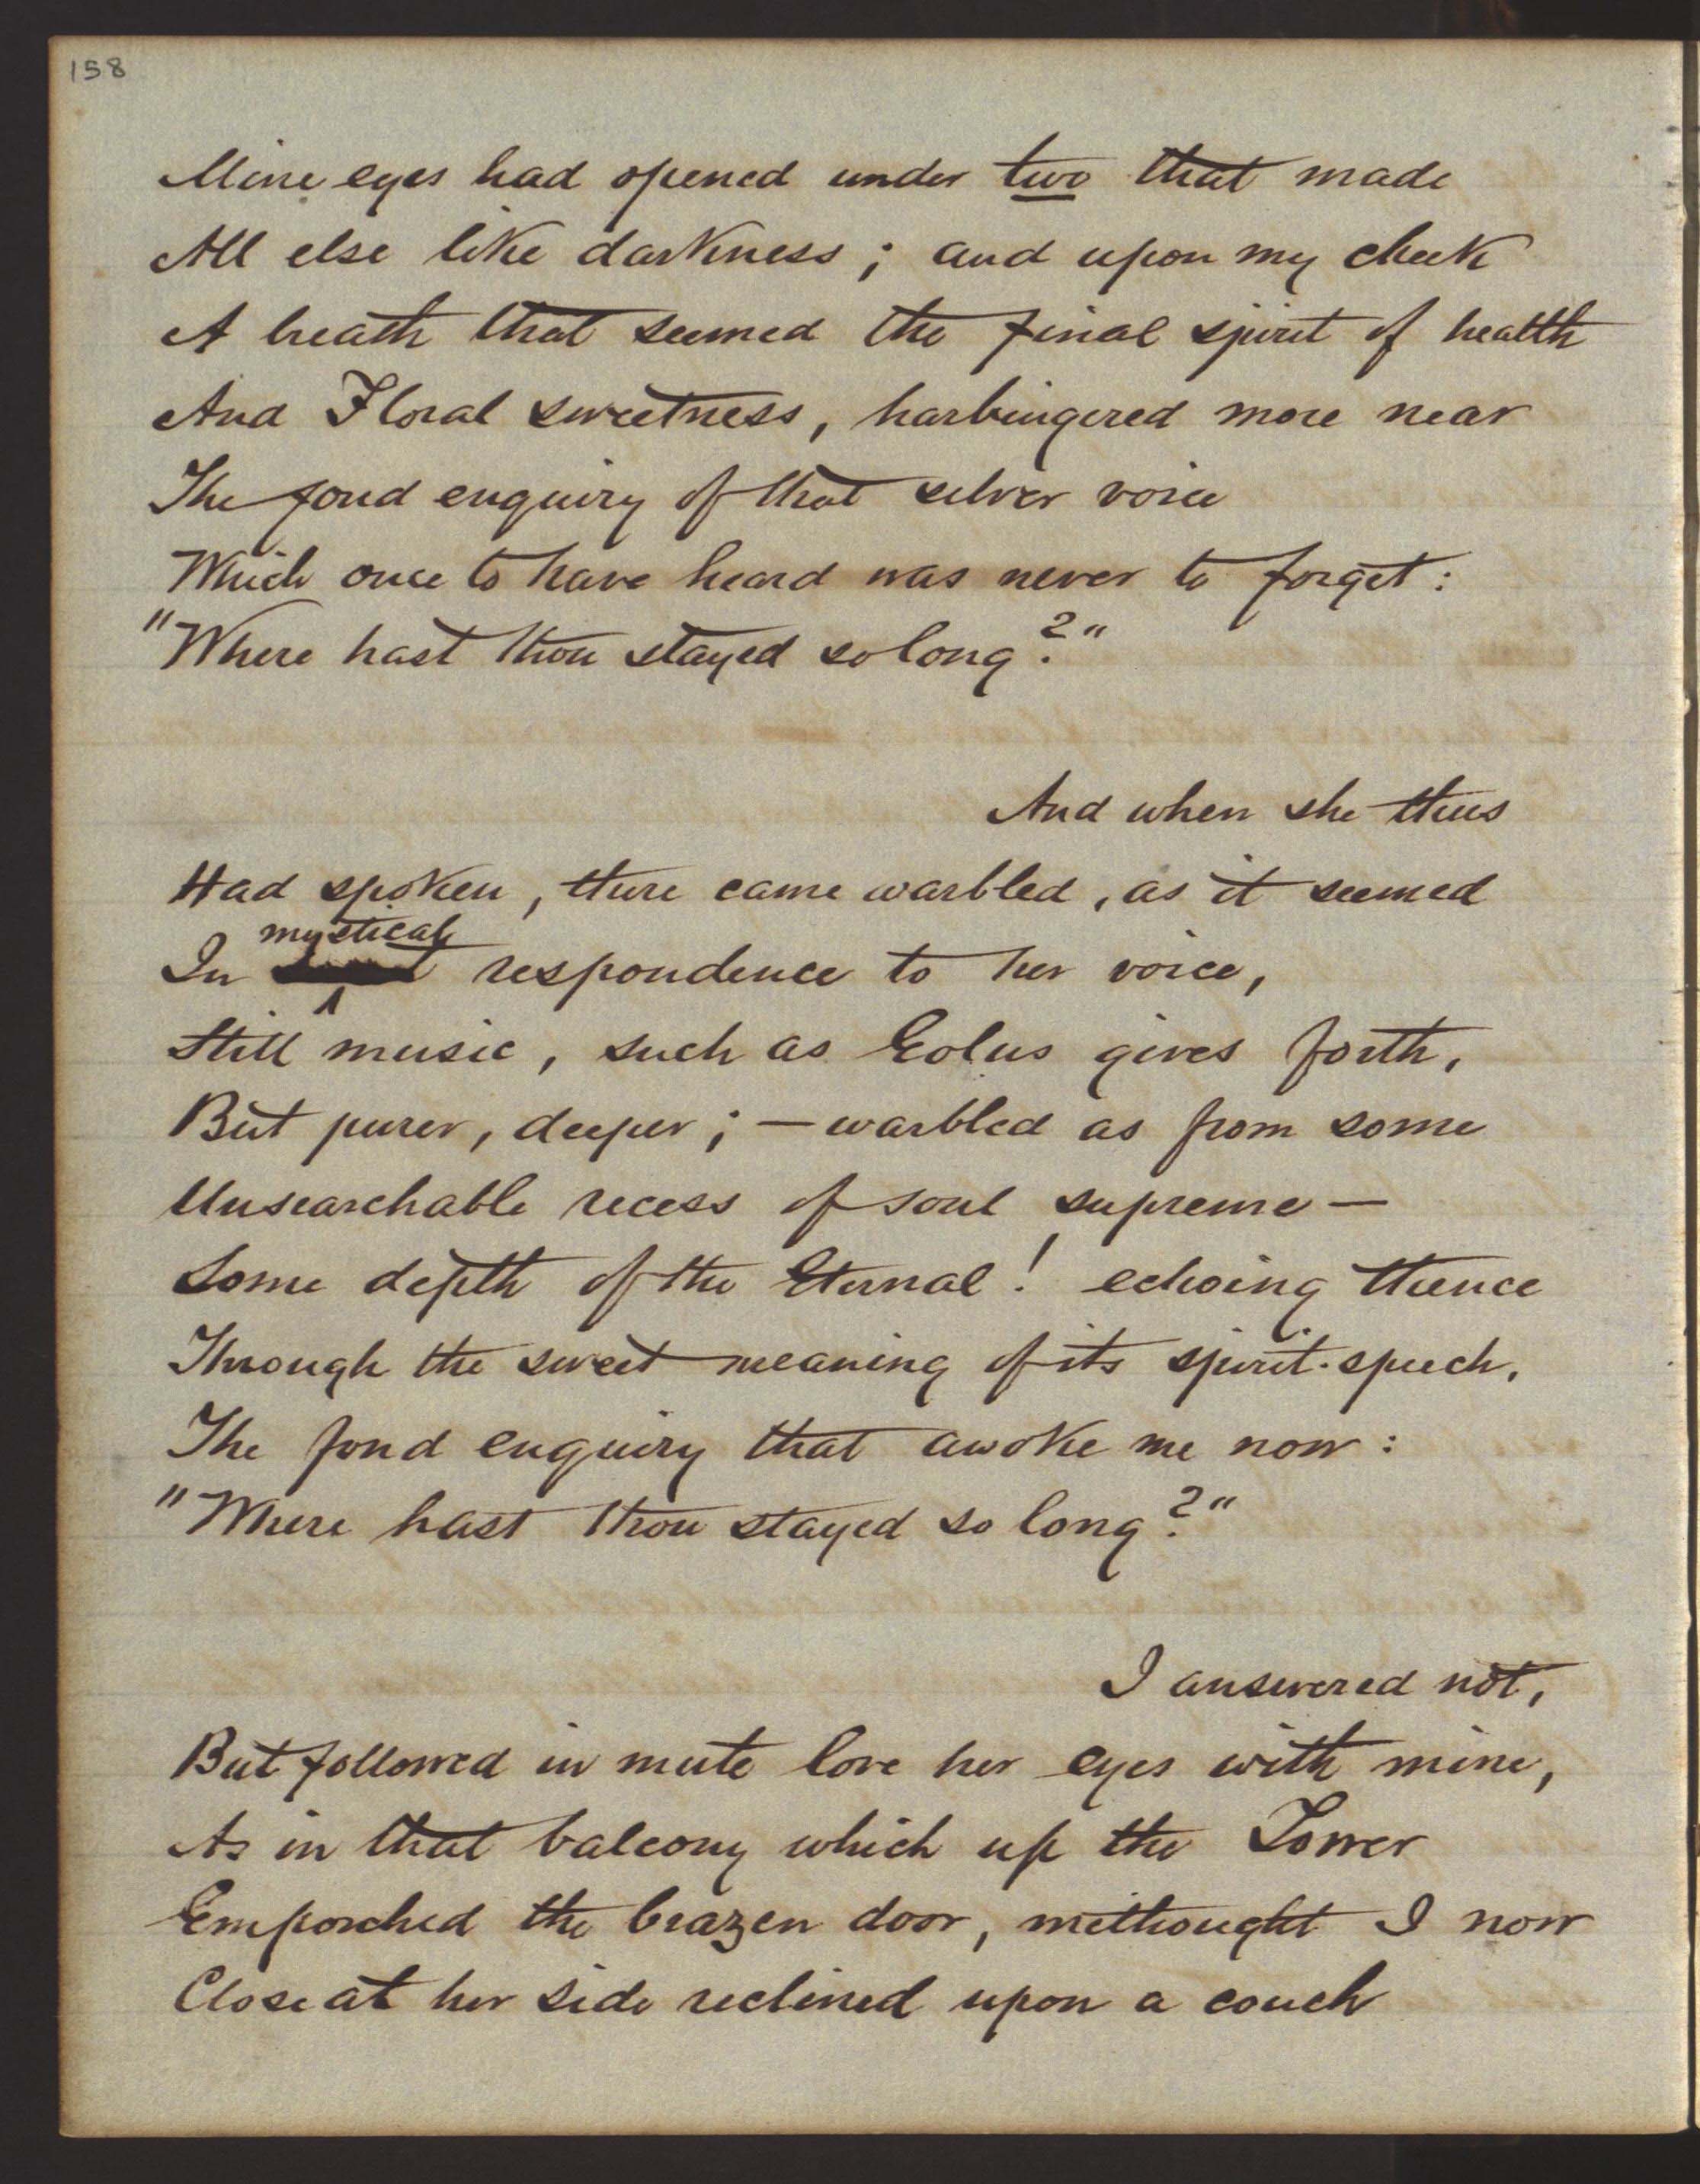 158
Mine eyes had opened under two that made
All else like darkness; and upon my cheek
A breath that seemed the final spirit of health
And Floral sweetness, harbingered more near
The fond enquiry of that silver voice
Which once to have heard was never to forget:
"Where hast thou stayed so long?"
And when she thus
Had spoken, there came warbled, as it seemed
mystical
In respondence to her voice,
Still music, such as Eolus gives forth,
But purer, deeper; — warbled as from some
Unsearchable recess of soul supreme —
Some depth of the Eternal! echoing thence
Through the sweet meaning of its spirit-speech,
The fond enquiry that awoke me now:
"Where hast thou stayed so long?"
I answered not,
But followed in mute love her eyes with mine,
As in that balcony which up the Tower
Emporched the brazen door, methought I now
Close at her side reclined upon a couch